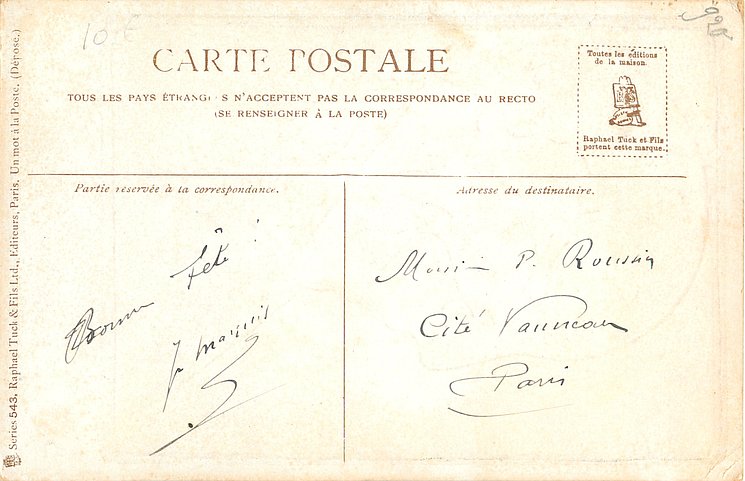 10 €
CARTE POSTALE
TOUS LES PAYS ÉTRANG S N'ACCEPTENT PAS LA CORRESPONDANCE AU RECTO
(SE RENSEIGNER À LA POSTE)
Toutes les éditions
de la maison
Raphael Tuck et Fils
portent cette marque.
Series 543. Raphael Tuck & Fils Ltd., Editeurs, Paris. Un mot à la Poste. (Déposé.)
Partie réservée à la correspondance.
Bonne fête !
Adresse du destinataire.
P. Roussin
Cité Vanneau
Paris